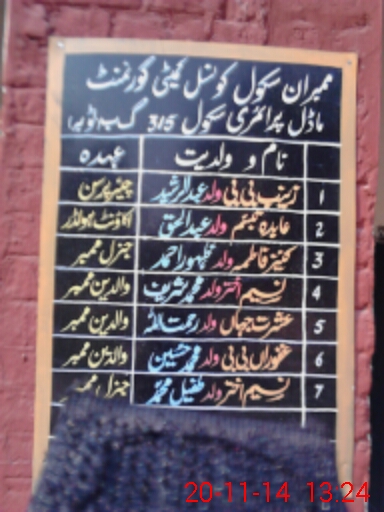 ممبران سکول کونسل کمیٹی گورنمنٹ
ماڈل پرائمری سکول 3/5 گ ب
نام و ولدیت عہدہ
1 زینب بی بی ولد عبدالرشید چیئرپرسن
2 عابدہ تبسم ولد عبدالحق اکاؤنٹ ہولڈر
3 کنیز فاطمہ ولد ظہور احمد جنرل ممبر
4 نسیم اختر ولد محمد شریف والدین ممبر
5 عشرت جہاں ولد رحمت اللہ والدین ممبر
6 غفوراں بی بی ولد محمد حسین والدین ممبر
7 نسیم اختر ولد طفیل محمد جنرل ممبر
20-11-14 13:24